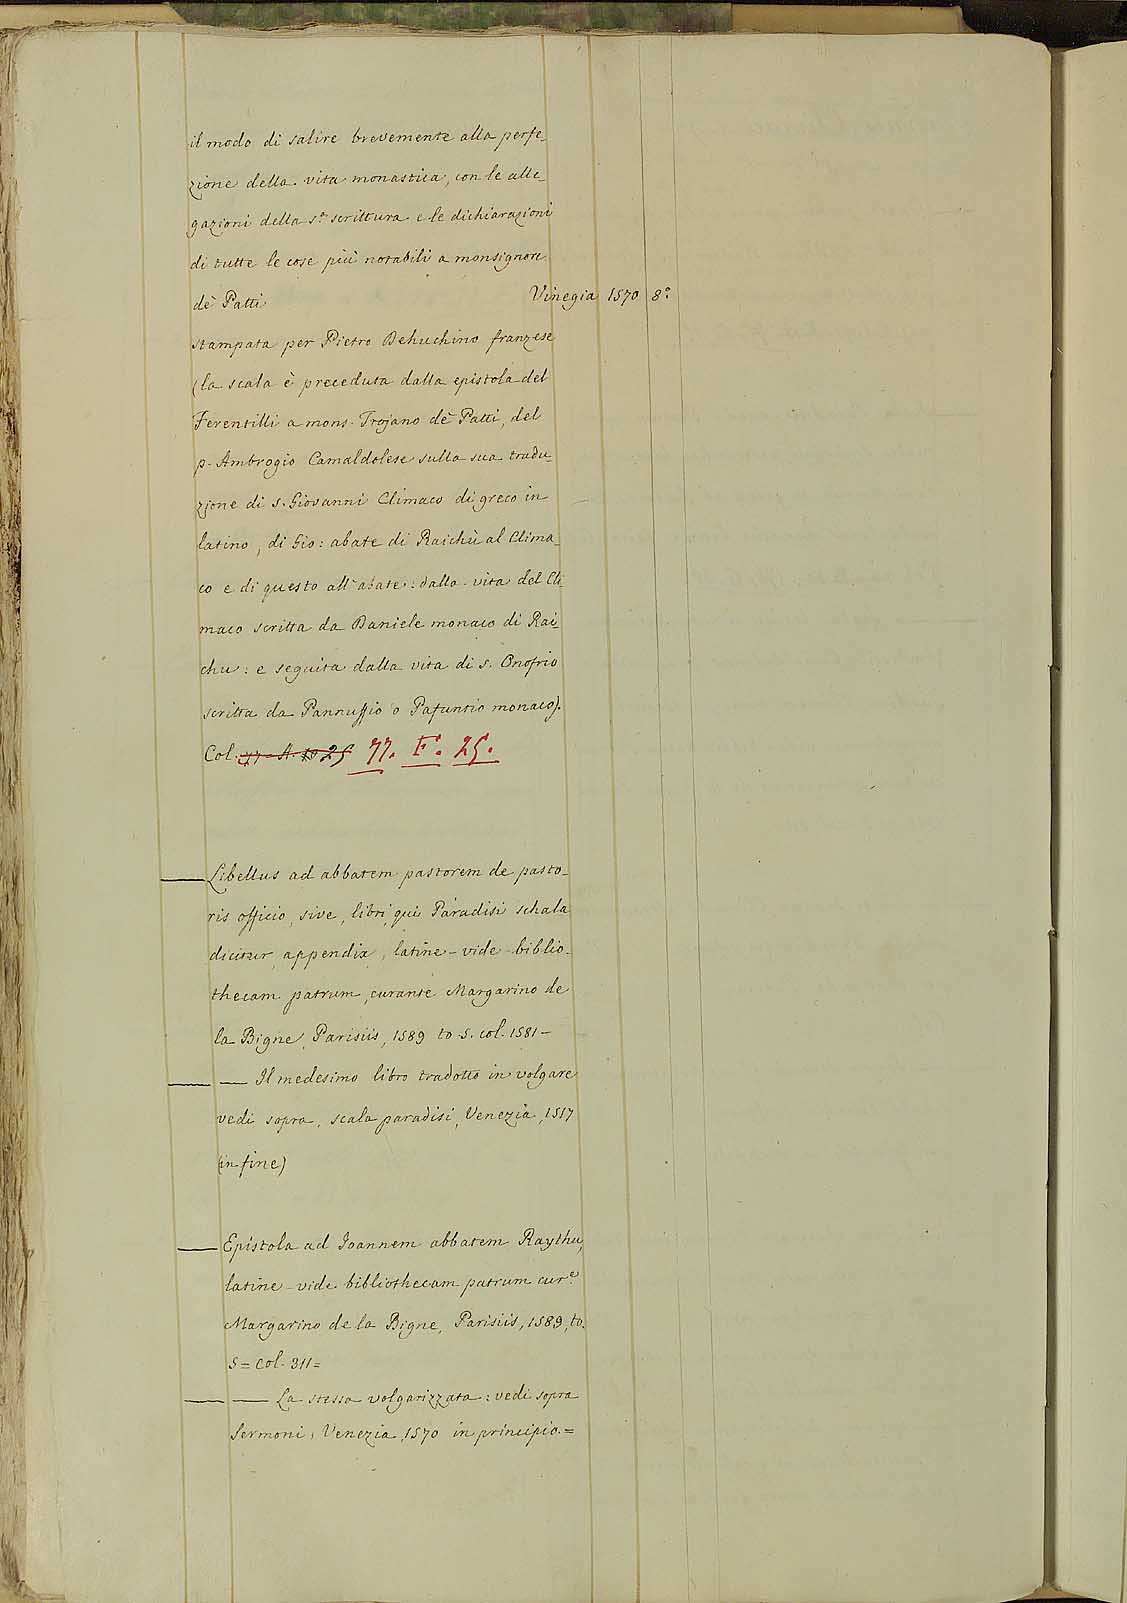 il modo di salire brevemente alla perfe_
zione della vita monastica, con le alle_
gazioni della s.ª scrittura e le dichiarazioni
di tutte le cose più notabili a monsignore
dè Patti Vinegia 1570 8.º
stampata per Pietro Dehuchino franzese
(la scala è preceduta dalla epistola del
Ferentilli a mons. Trojano dè Patti, del
p. Ambrogio Camaldolese sulla sua tradu_
zione di s. Giovanni Climaco di greco in
latino, di Gio: abate di Raichù al Clima_
co e di questo all'abate: dalla vita del Cli_
maco scritta da Daniele monaco di Rai_
chu: e seguita dalla vita di s. Onofrio
scritta da Pannuffio o Pafuntio monaco).
Col. 77. F. 25.
—— Libellus ad abbatem pastorem de pasto_
ris officio, sive, libri, qui Paradisi schala
dicitur, appendix, latine - vide biblio_
thecam patrum, curante Margarino de
la Bigne, Parisiis, 1589 to 5. col. 1581 —
—— —— Il medesimo libro tradotto in volgare
vedi sopra, scala paradisi, Venezia, 1517
(in fine)
—— Epistola ad Joannem abbatem Raythu,
latine - vide bibliothecam patrum cur.e
Margarino de la Bigne, Parisiis, 1589, to.
5 = col. 311 =
—— —— La stessa volgarizzata: vedi sopra
Sermoni, Venezia, 1570 in principio. =